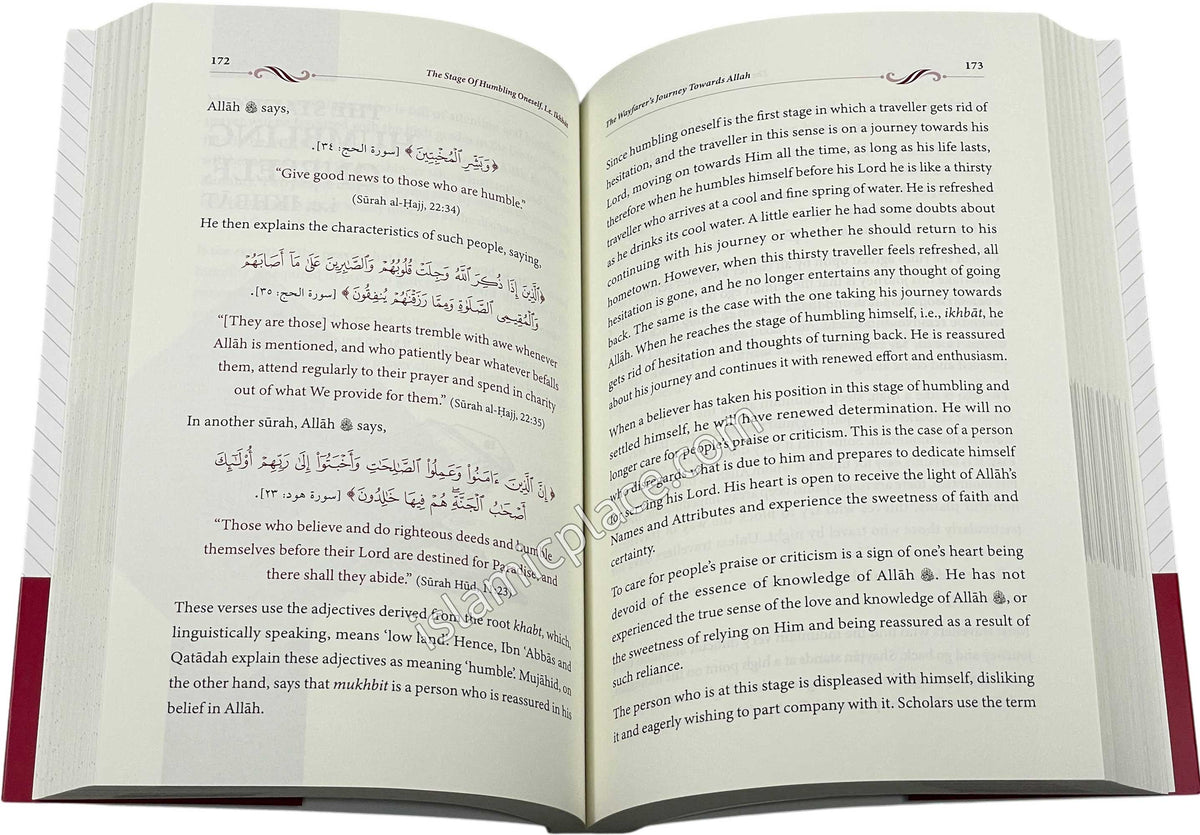 172
The Stage Of Humbling Oneself, i.e. Ikhbāt
Allāh ﷻ says,
﴿وَبَشِّرِ ٱلْمُخْبِتِينَ﴾ [سورة الحج: ٣٤].
“Give good news to those who are humble.”
(Sūrah al-Ḥajj, 22:34)
He then explains the characteristics of such people, saying,
﴿ٱلَّذِينَ إِذَا ذُكِرَ ٱللَّهُ وَجِلَتْ قُلُوبُهُمْ وَٱلصَّـٰبِرِينَ عَلَىٰ مَآ أَصَابَهُمْ
وَٱلْمُقِيمِى ٱلصَّلَوٰةِ وَمِمَّا رَزَقْنَـٰهُمْ يُنفِقُونَ﴾ [سورة الحج: ٣٥].
“[They are those] whose hearts tremble with awe whenever
Allāh is mentioned, and who patiently bear whatever befalls
them, attend regularly to their prayer and spend in charity
out of what We provide for them.” (Sūrah al-Ḥajj, 22:35)
In another sūrah, Allāh ﷻ says,
﴿إِنَّ ٱلَّذِينَ ءَامَنُوا۟ وَعَمِلُوا۟ ٱلصَّـٰلِحَـٰتِ وَأَخْبَتُوٓا۟ إِلَىٰ رَبِّهِمْ أُو۟لَـٰٓئِكَ
أَصْحَـٰبُ ٱلْجَنَّةِ ۖ هُمْ فِيهَا خَـٰلِدُونَ﴾ [سورة هود: ٢٣].
“Those who believe and do righteous deeds and humble
themselves before their Lord are destined for Paradise, and
there shall they abide.” (Sūrah Hūd, 11:23)
These verses use the adjectives derived from the root khabt, which,
linguistically speaking, means ‘low land’. Hence, Ibn ‘Abbās and
Qatādah explain these adjectives as meaning ‘humble’. Mujāhid, on
the other hand, says that mukhbit is a person who is reassured in his
belief in Allāh.
The Wayfarer’s Journey Towards Allah
173
Since humbling oneself is the first stage in which a traveller gets rid of
hesitation, and the traveller in this sense is on a journey towards his
Lord, moving on towards Him all the time, as long as his life lasts,
therefore when he humbles himself before his Lord he is like a thirsty
traveller who arrives at a cool and fine spring of water. He is refreshed
as he drinks its cool water. A little earlier he had some doubts about
continuing with his journey or whether he should return to his
hometown. However, when this thirsty traveller feels refreshed, all
hesitation is gone, and he no longer entertains any thought of going
back. The same is the case with the one taking his journey towards
Allāh. When he reaches the stage of humbling himself, i.e., ikhbāt, he
gets rid of hesitation and thoughts of turning back. He is reassured
about his journey and continues it with renewed effort and enthusiasm.
When a believer has taken his position in this stage of humbling and
settled himself, he will have renewed determination. He will no
longer care for people’s praise or criticism. This is the case of a person
who disregards what is due to him and prepares to dedicate himself
for serving his Lord. His heart is open to receive the light of Allāh’s
Names and Attributes and experience the sweetness of faith and
certainty.
To care for people’s praise or criticism is a sign of one’s heart being
devoid of the essence of knowledge of Allāh ﷻ. He has not
experienced the true sense of the love and knowledge of Allāh ﷻ, or
the sweetness of relying on Him and being reassured as a result of
such reliance.
The person who is at this stage is displeased with himself, disliking
it and eagerly wishing to part company with it. Scholars use the term
islamicplace.com